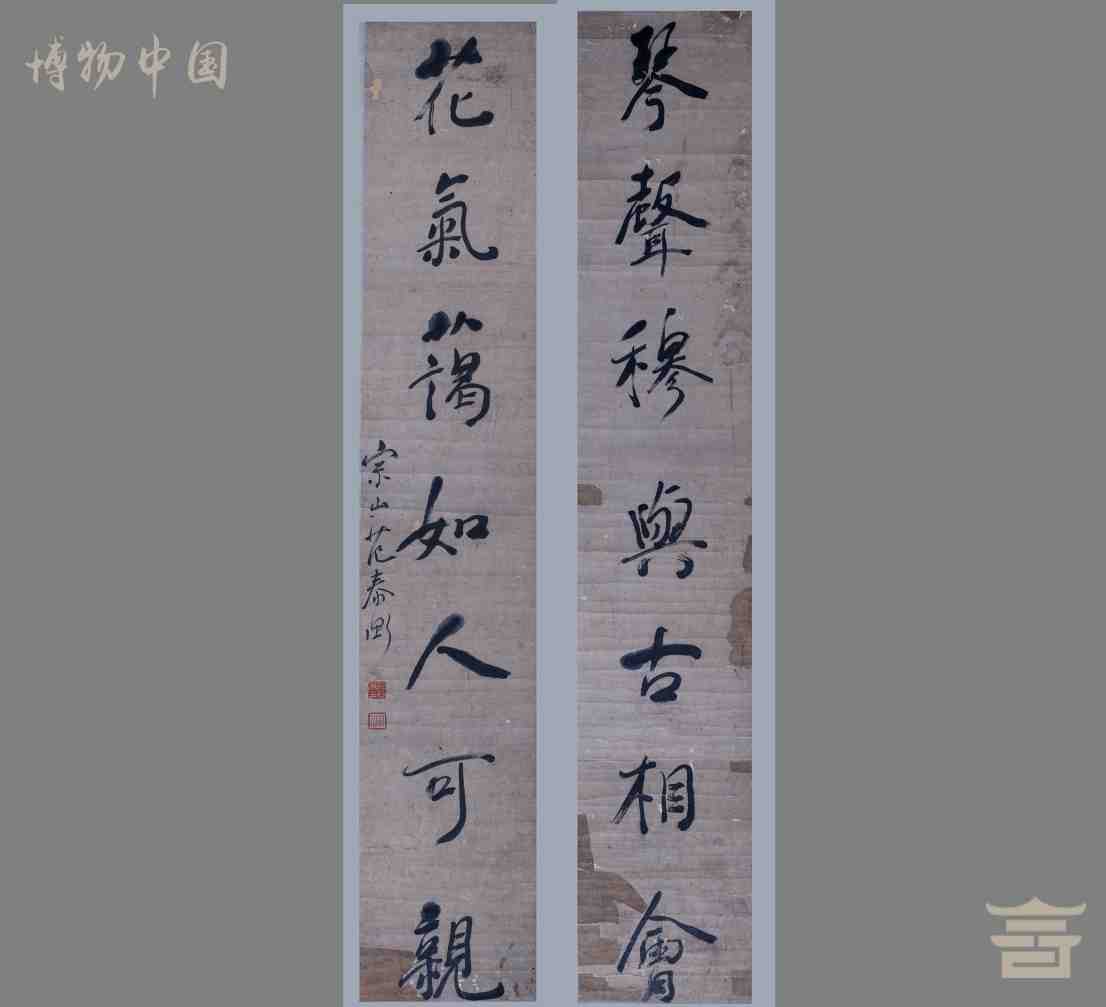 博物中国
琴聲穆與古相會
花氣藹如人可親
宗山范泰衡